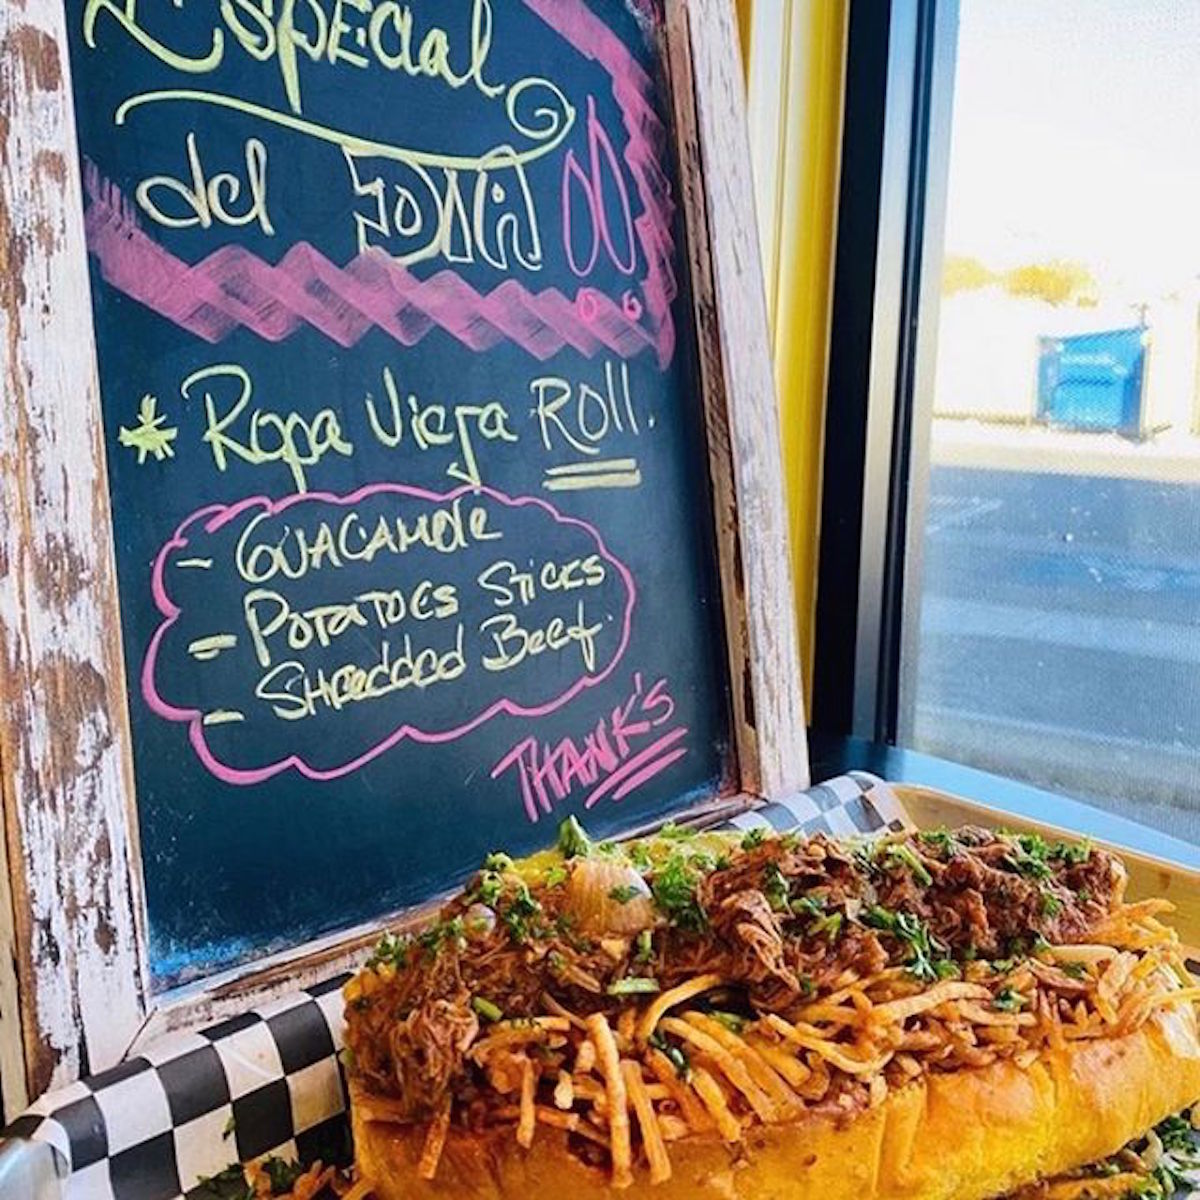 Especial
del
* Ropa Vieja Roll.
- GUACAMOLE
- POTATOES STICKS
- SHREDDED BEEF.
THANK'S